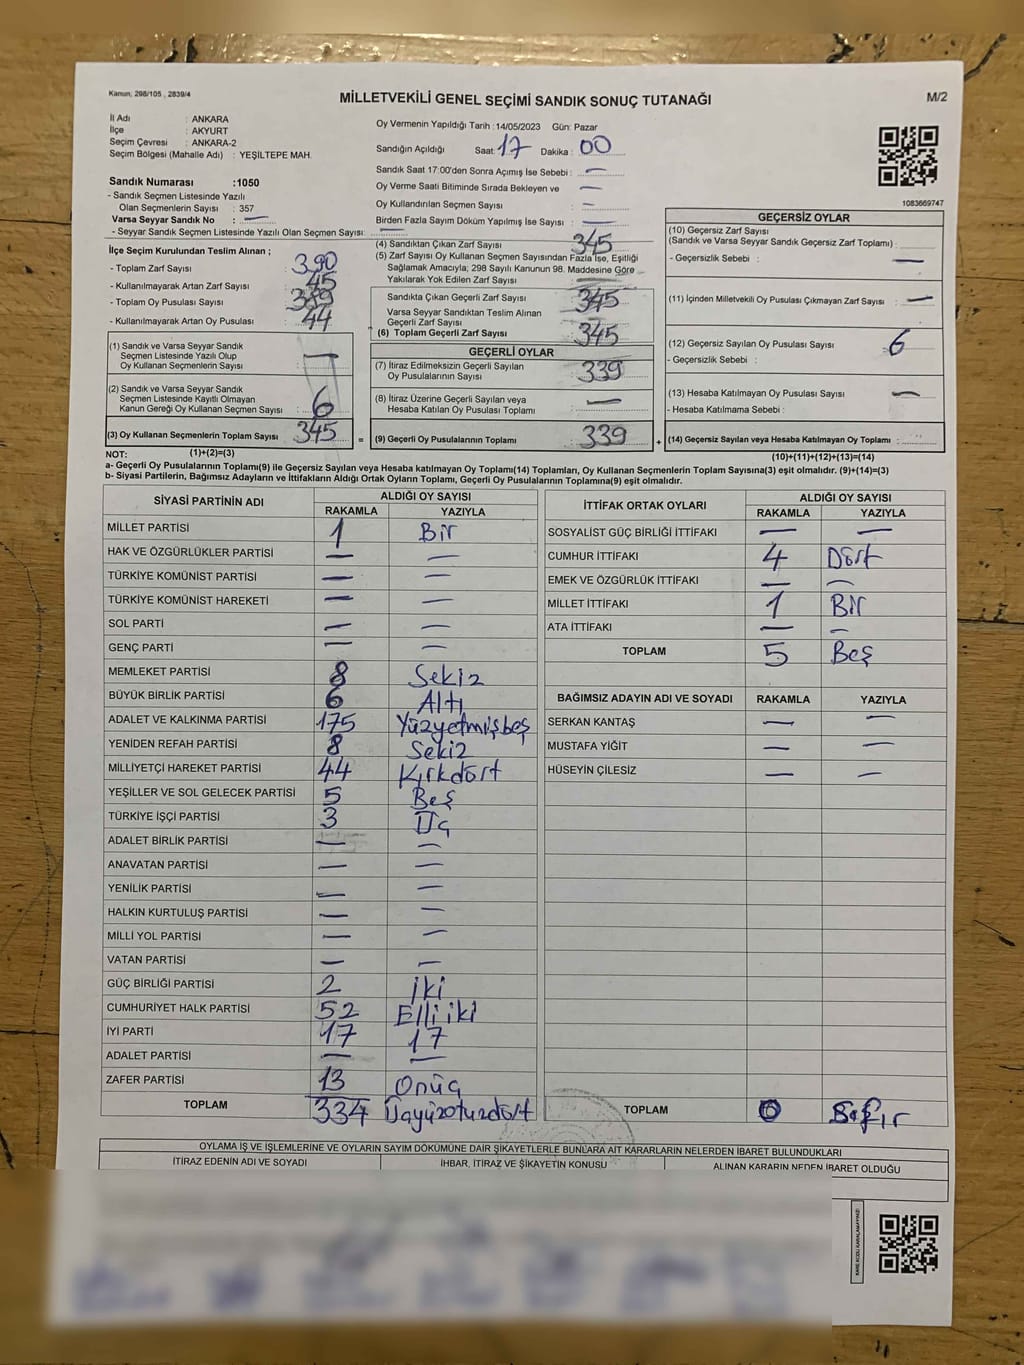 Kanun, 298/105 , 2839/4
MİLLETVEKİLİ GENEL SEÇİMİ SANDIK SONUÇ TUTANAĞI
M/2
İl Adı : ANKARA
İlçe : AKYURT
Seçim Çevresi : ANKARA-2
Seçim Bölgesi (Mahalle Adı) : YEŞİLTEPE MAH.
Sandık Numarası :1050
- Sandık Seçmen Listesinde Yazılı
Olan Seçmenlerin Sayısı : 357
Varsa Seyyar Sandık No : —
- Seyyar Sandık Seçmen Listesinde Yazılı Olan Seçmen Sayısı: —
Oy Vermenin Yapıldığı Tarih : 14/05/2023 Gün: Pazar
Sandığın Açıldığı Saat: 17 Dakika : 00
Sandık Saat 17:00'den Sonra Açımış İse Sebebi : —
Oy Verme Saati Bitiminde Sırada Bekleyen ve —
Oy Kullandırılan Seçmen Sayısı : —
Birden Fazla Sayım Döküm Yapılmış İse Sayısı : —
1083669747
İlçe Seçim Kurulundan Teslim Alınan ;
- Toplam Zarf Sayısı : 390
- Kullanılmayarak Artan Zarf Sayısı : 45
- Toplam Oy Pusulası Sayısı : 389
- Kullanılmayarak Artan Oy Pusulası : 44
(1) Sandık ve Varsa Seyyar Sandık
Seçmen Listesinde Yazılı Olup
Oy Kullanan Seçmenlerin Sayısı :
(2) Sandık ve Varsa Seyyar Sandık
Seçmen Listesinde Kayıtlı Olmayan
Kanun Gereği Oy Kullanan Seçmen Sayısı : 6
(3) Oy Kullanan Seçmenlerin Toplam Sayısı : 345 =
(4) Sandıktan Çıkan Zarf Sayısı : 345
(5) Zarf Sayısı Oy Kullanan Seçmen Sayısından Fazla İse, Eşitliği
Sağlamak Amacıyla; 298 Sayılı Kanunun 98. Maddesine Göre
Yakılarak Yok Edilen Zarf Sayısı : —
Sandıkta Çıkan Geçerli Zarf Sayısı : 345
Varsa Seyyar Sandıktan Teslim Alınan
Geçerli Zarf Sayısı :
(6) Toplam Geçerli Zarf Sayısı : 345
GEÇERLİ OYLAR
(7) İtiraz Edilmeksizin Geçerli Sayılan
Oy Pusulalarının Sayısı : 339
(8) İtiraz Üzerine Geçerli Sayılan veya
Hesaba Katılan Oy Pusulası Toplamı : —
(9) Geçerli Oy Pusulalarının Toplamı : 339 +
GEÇERSİZ OYLAR
(10) Geçersiz Zarf Sayısı
(Sandık ve Varsa Seyyar Sandık Geçersiz Zarf Toplamı) :
- Geçersizlik Sebebi : —
(11) İçinden Milletvekili Oy Pusulası Çıkmayan Zarf Sayısı : —
(12) Geçersiz Sayılan Oy Pusulası Sayısı : 6
- Geçersizlik Sebebi :
(13) Hesaba Katılmayan Oy Pusulası Sayısı : —
- Hesaba Katılmama Sebebi :
(14) Geçersiz Sayılan veya Hesaba Katılmayan Oy Toplamı :
NOT: (1)+(2)=(3) (10)+(11)+(12)+(13)=(14)
a- Geçerli Oy Pusulalarının Toplamı(9) ile Geçersiz Sayılan veya Hesaba katılmayan Oy Toplamı(14) Toplamları, Oy Kullanan Seçmenlerin Toplam Sayısına(3) eşit olmalıdır. (9)+(14)=(3)
b- Siyasi Partilerin, Bağımsız Adayların ve İttifakların Aldığı Ortak Oyların Toplamı, Geçerli Oy Pusulalarının Toplamına(9) eşit olmalıdır.
SİYASİ PARTİNİN ADI ALDIĞI OY SAYISI
RAKAMLA YAZIYLA
MİLLET PARTİSİ 1 Bir
HAK VE ÖZGÜRLÜKLER PARTİSİ — —
TÜRKİYE KOMÜNİST PARTİSİ — —
TÜRKİYE KOMÜNİST HAREKETİ — —
SOL PARTİ — —
GENÇ PARTİ — —
MEMLEKET PARTİSİ 8 Sekiz
BÜYÜK BİRLİK PARTİSİ 6 Altı
ADALET VE KALKINMA PARTİSİ 175 Yüzyetmişbeş
YENİDEN REFAH PARTİSİ 8 Sekiz
MİLLİYETÇİ HAREKET PARTİSİ 44 Kırkdört
YEŞİLLER VE SOL GELECEK PARTİSİ 5 Beş
TÜRKİYE İŞÇİ PARTİSİ 3 Üç
ADALET BİRLİK PARTİSİ — —
ANAVATAN PARTİSİ — —
YENİLİK PARTİSİ — —
HALKIN KURTULUŞ PARTİSİ — —
MİLLİ YOL PARTİSİ — —
VATAN PARTİSİ — —
GÜÇ BİRLİĞİ PARTİSİ 2 İki
CUMHURİYET HALK PARTİSİ 52 Elli iki
İYİ PARTİ 17 17
ADALET PARTİSİ — —
ZAFER PARTİSİ 13 Onüç
TOPLAM 334 Üçyüzotuzdört
İTTİFAK ORTAK OYLARI ALDIĞI OY SAYISI
RAKAMLA YAZIYLA
SOSYALİST GÜÇ BİRLİĞİ İTTİFAKI — —
CUMHUR İTTİFAKI 4 Dört
EMEK VE ÖZGÜRLÜK İTTİFAKI — —
MİLLET İTTİFAKI 1 Bir
ATA İTTİFAKI — —
TOPLAM 5 Beş
BAĞIMSIZ ADAYIN ADI VE SOYADI RAKAMLA YAZIYLA
SERKAN KANTAŞ — —
MUSTAFA YİĞİT — —
HÜSEYİN ÇİLESİZ — —
TOPLAM 0 Sıfır
OYLAMA İŞ VE İŞLEMLERİNE VE OYLARIN SAYIM DÖKÜMÜNE DAİR ŞİKAYETLERLE BUNLARA AİT KARARLARIN NELERDEN İBARET BULUNDUKLARI
İTİRAZ EDENİN ADI VE SOYADI İHBAR, İTİRAZ VE ŞİKAYETİN KONUSU ALINAN KARARIN NEDEN İBARET OLDUĞU